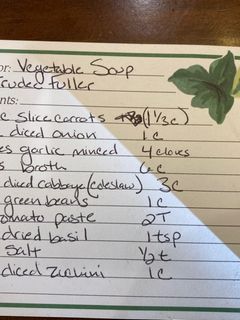 or: Vegetable Soup
Truder Fuller
nts:
c slice carrots (1 1/3 c)
diced onion 1 c
es garlic minced 4 cloves
s broth 6 c
diced cabbage (coleslaw) 3c
green beans 1 c
omato paste 2T
dried basil 1 tsp
salt 1/2 t
diced zuchini 1 c